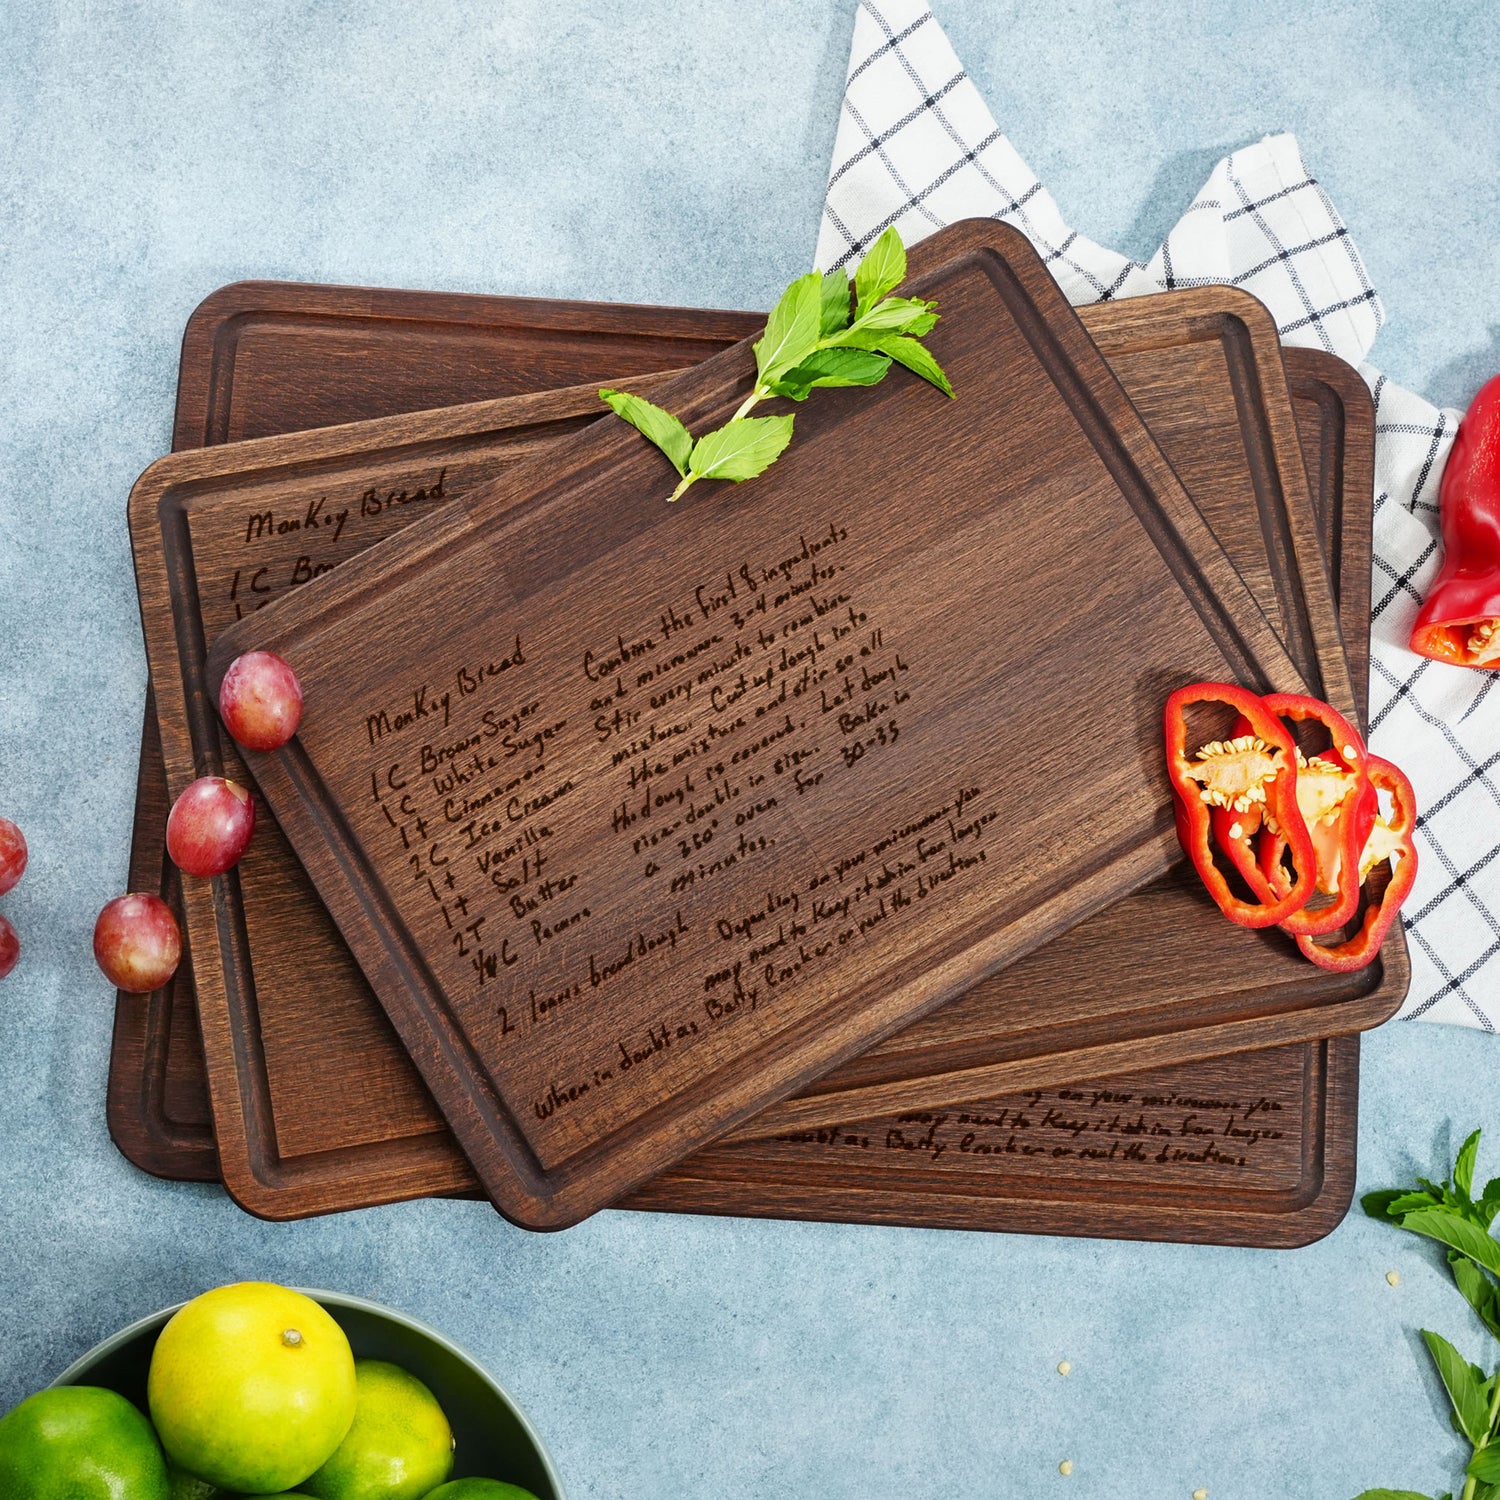 Monkey Bread
1 C Br
Monkey Bread
1 C Brown Sugar
1 C White Sugar
1 t Cinnamon
2 C Ice Cream
1 t Vanilla
1 t Salt
2 T Butter
C Pecans
2 loaves bread dough
Combine the first 8 ingredients
and microwave 3-4 minutes.
Stir every minute to combine
mixture. Cut up dough into
the mixture and stir so all
the dough is covered. Let dough
rise-double in size. Bake in
a 350° oven for 30-35
minutes.
Depending on your microwave you
may need to keep it in for longer
When in doubt as Betty Crocker or read the directions
on your microwave you
may need to keep it in for longer
doubt as Betty Crocker or read the directions